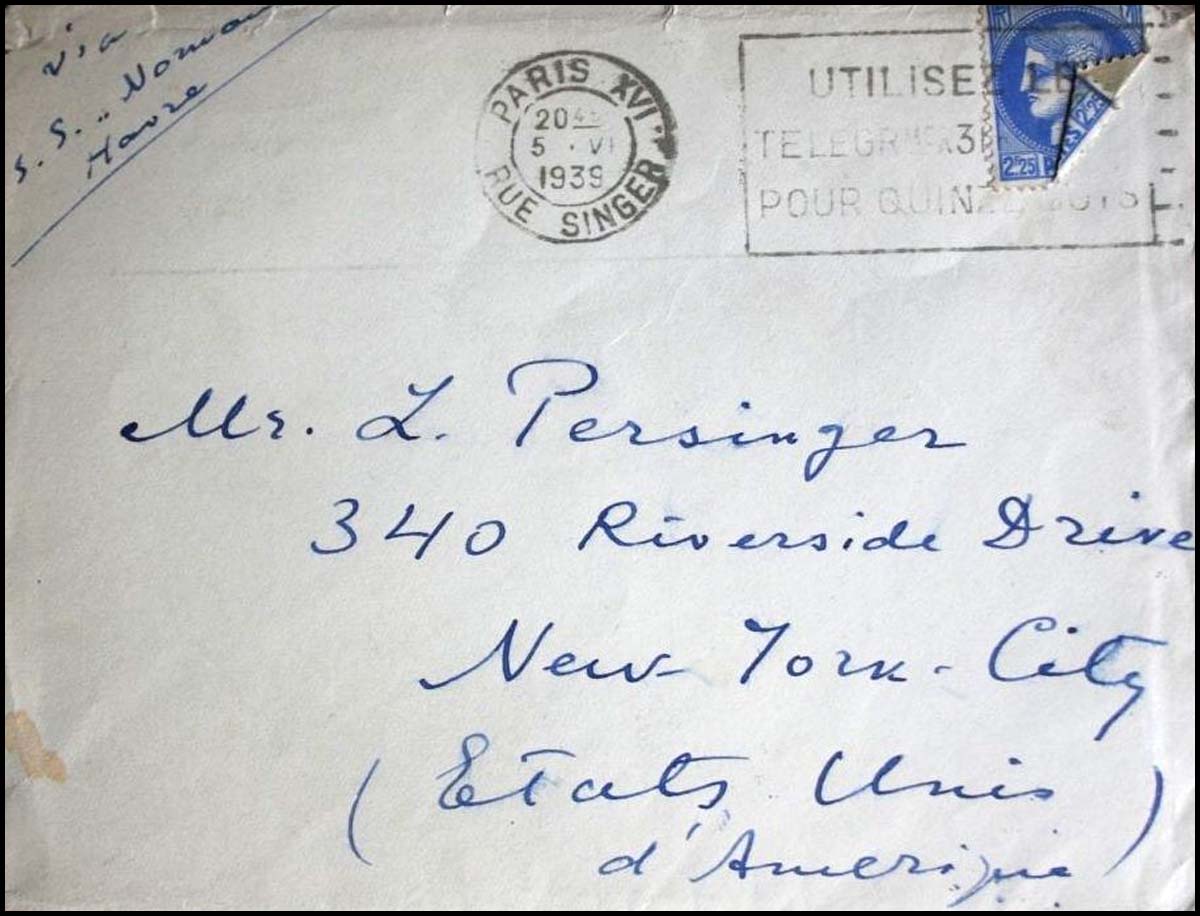 via
S.S. „Norman
Havre
PARIS XVI
20
5 · VI
1939
RUE SINGER
UTILISEZ LE
3
POUR QUINZE MOTS
2F25
2F25
Mr. L. Persinger
340 Riverside Drive
New-York-City
(Etats Unis
d'Amerique)